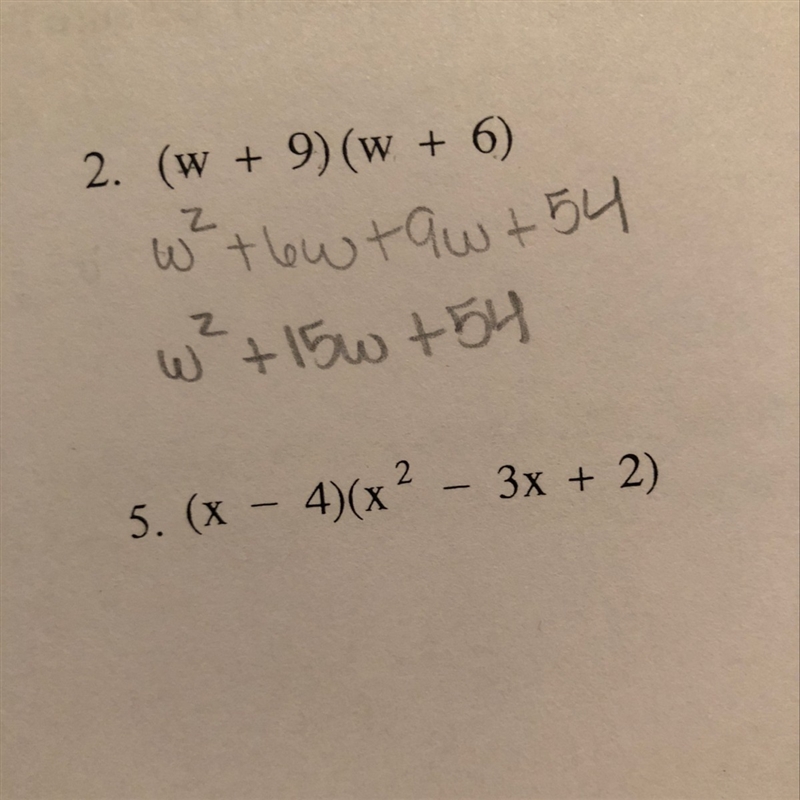 2. (w + 9)(w + 6)
w² + 6w + 9w + 54
w² + 15w + 54
5. (x − 4)(x² − 3x + 2)